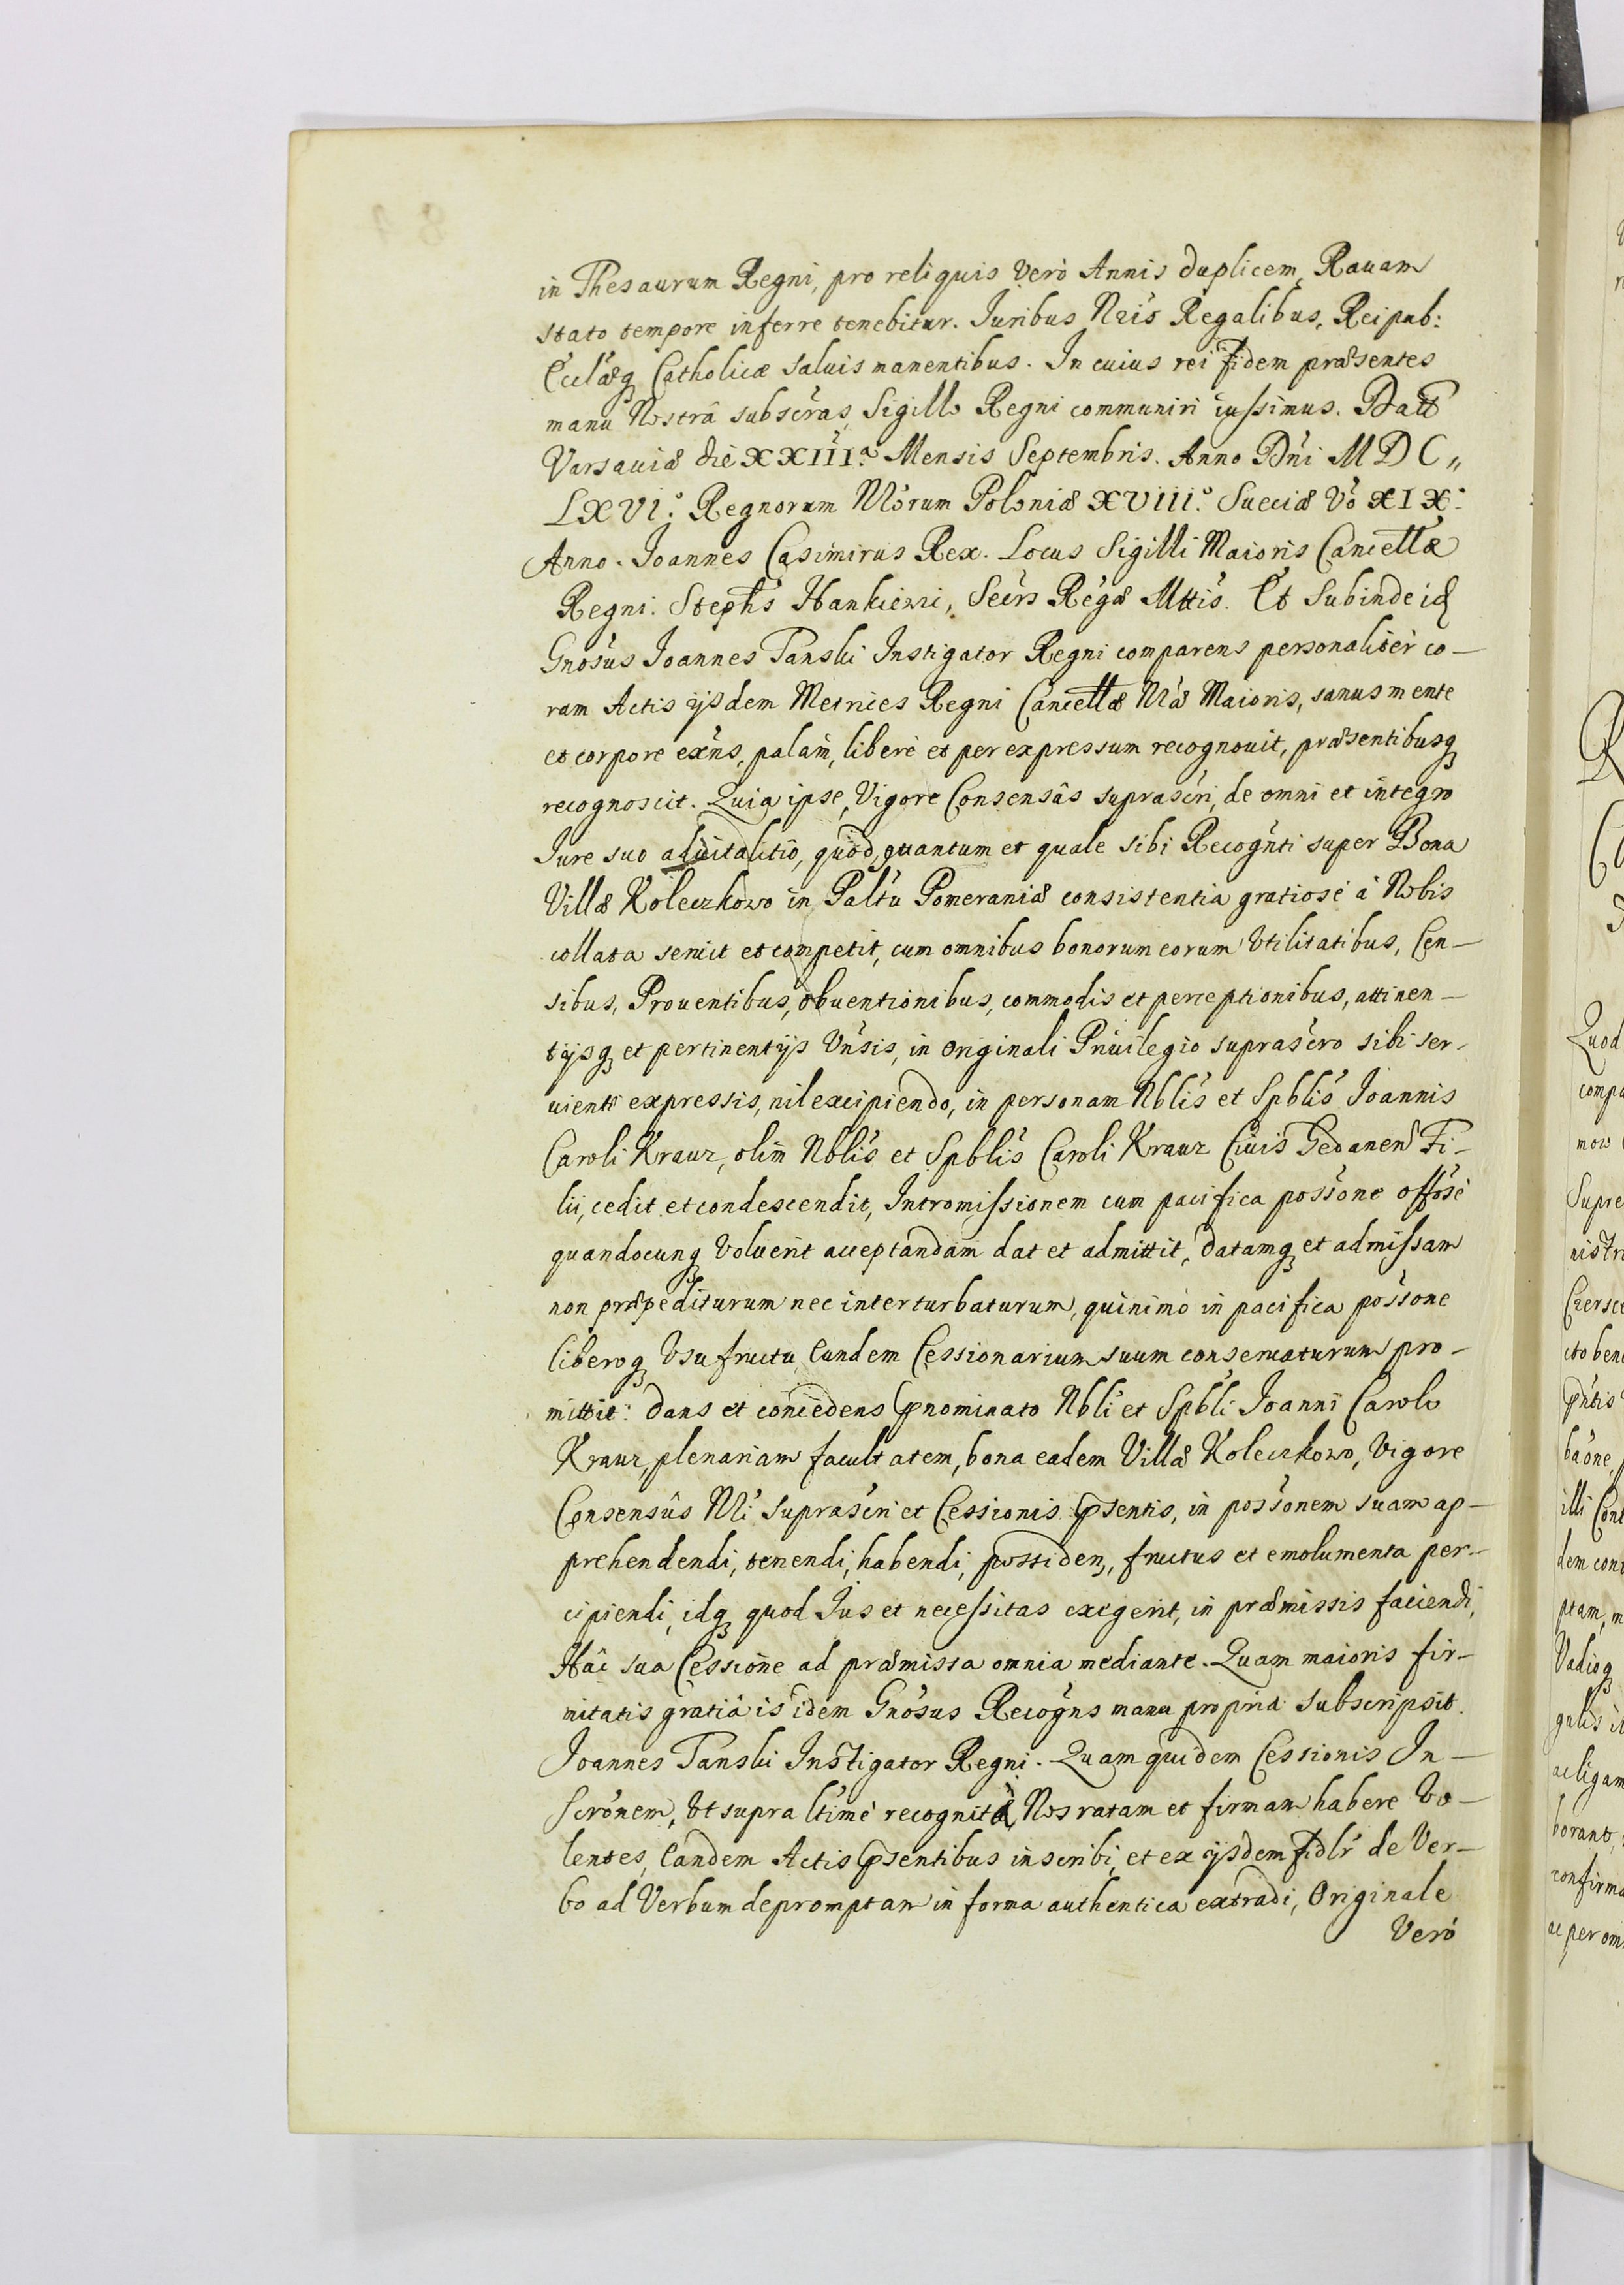 in Thesaurum Regni, pro reliquis verò Annis duplicem, Rauam
stato tempore inferre tenebitur. Juribus Nris Regalibus, Reipub:
Eccl̃æq Catholicæ saluis manentibus. In cuius rei fidem præsentes
manu Nostrâ subscras, Sigillo Regni communiri iussimus. Datt
Varsauiæ die XXIIIa. Mensis Septembris. Anno Dñi MDC„
LXVI.o Regnorum Nr̃orum Poloniæ XVIII.o Sueciæ Vo XIX.
Anno. Joannes Casimirus Rex. Locus Sigilli Maioris Cancellæ
Regni. Stephs Hankiewi, Secrs Regæ Mttis. Et Subinde id
Gnosus Joannes Tanski Instigator Regni comparens personalitèr co-
ram Actis ijsdem Metrices Regni Cancellæ Nræ Maioris, sanus mente
et corpore exñs, palàm, liberè et per expressum recognouit, præsentibusq
recognoscit. Quia ipse, Vigore Consensûs suprascri, de omni et integro
Jure suo aduitalitio, quòd, quantum et quale sibi Recognti super Bona
Villæ Koleczkowo in Paltu Pomeraniæ consistentia gratiosè à Nobis
collata seruit et competit, cum omnibus bonorum eorum Vtilitatibus, Cen-
sibus, Prouentibus, obuentionibus, commodis et perceptionibus, attinen-
tijsq et pertinentijs Vnsis, in originali Priuilegio suprascro sibi ser-
uiente expressis, nil excipiendo, in personam Nblis et Spblis Joannis
Caroli Krauz, olim Nblis et Spblis Caroli Krauz Ciuis Gedanen Fi-
lii, cedit et condescendit, Intromissionem cum pacifica possone offose
quandocunq Voluerit acceptandam dat et admittit, datamq et admissam
non præpediturum nec interturbaturum, quinimò in pacifica possone
liberoq Vsufructu Eundem Cessionarium suum conseruaturum pro-
mittit: dans et concedens pnominato Nbli et Spbli Joanni Carolo
Krauz, plenariam facultatem, bona eadem Villæ Koleczkowo, Vigore
Consensûs Nri suprascri et Cessionis psentis, in possonem suam ap-
prehendendi, tenendi, habendi, possiden, fructus et emolumenta per-
cipiendi, idq quod Jus et necessitas exegerit, in præmissis faciendi,
Hâc sua Cessione ad præmissa omnia mediante. Quam maioris fir-
mitatis gratiâ is idem Gnosus Recogns manu propria subscripsit.
Joannes Tanski Instigator Regni. Quam quidem Cessionis In-
scronem, Vt supra ltimè recognitã, Nos ratam et firmam habere Vo-
lentes, Eandem Actis psentibus inscribi, et ex ijsdem fidlr de Ver-
bo ad Verbum depromptam in forma authentica extradi, Originale
Verò